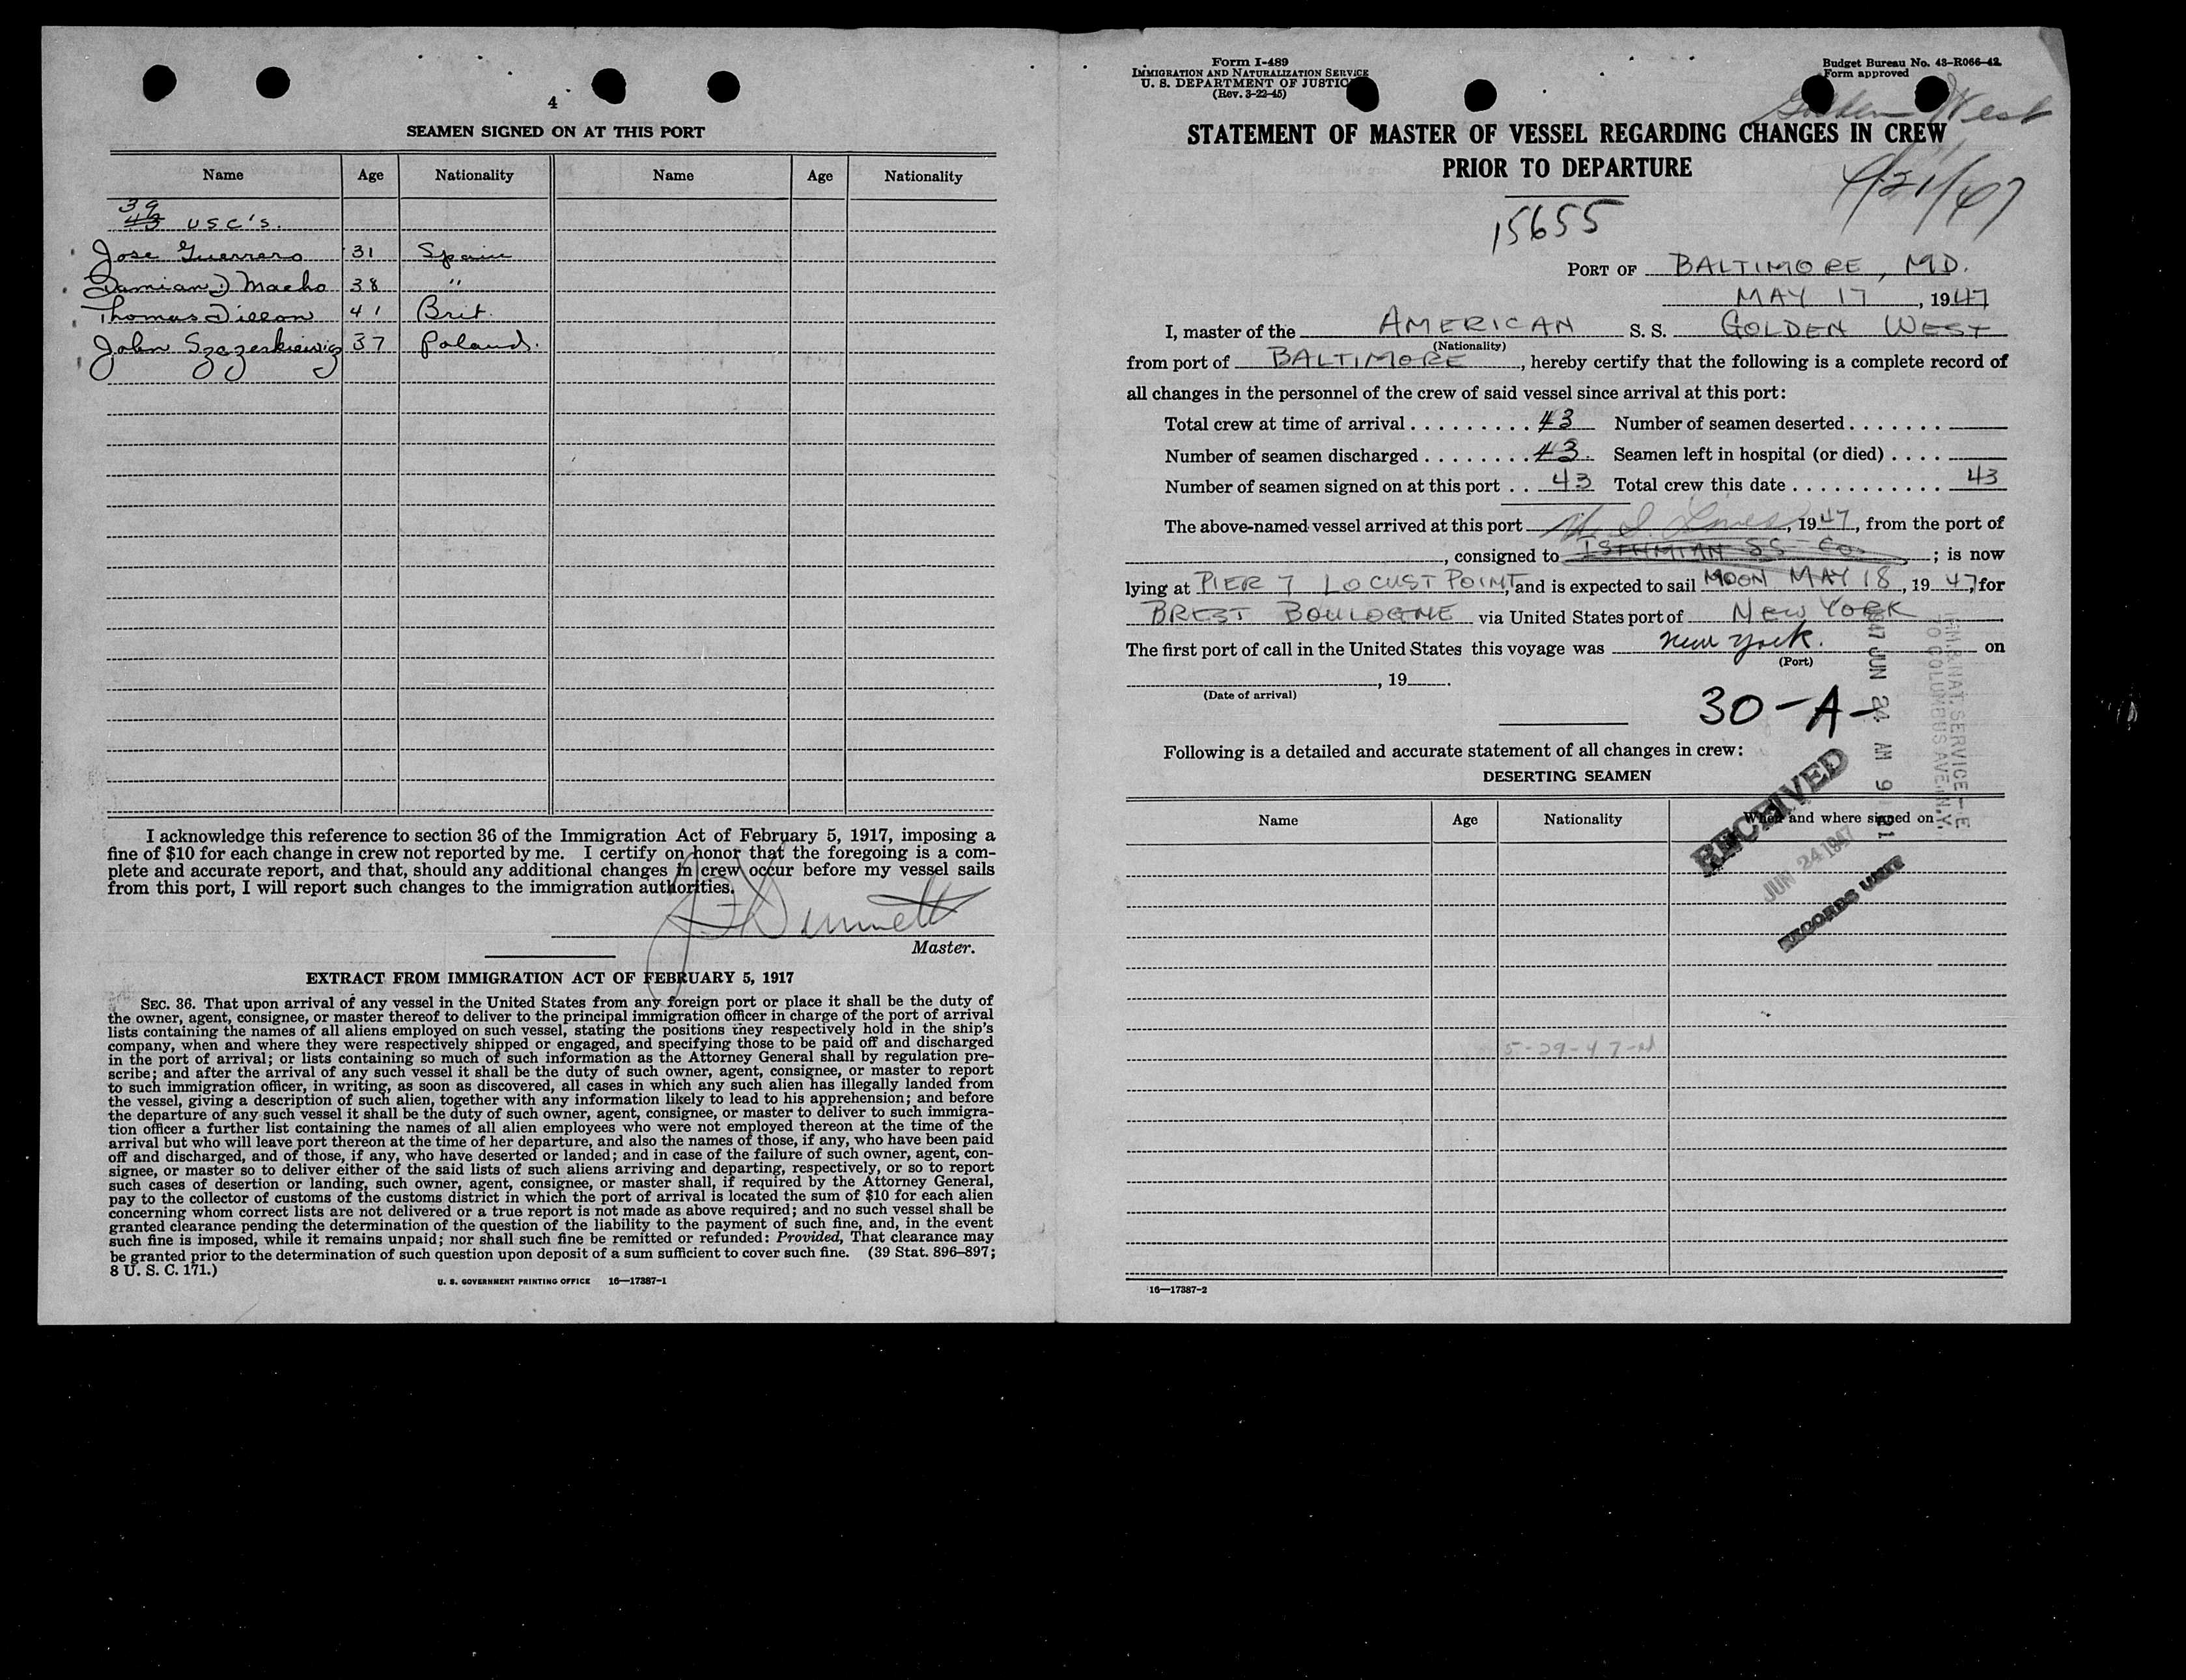 4
SEAMEN SIGNED ON AT THIS PORT
Name Age Nationality Name Age Nationality
39
43 USC'S.
Jose Guerrero 31 Spain
Damian D Macho 38 "
Thomas Dillon 41 Brit.
John Szczerkiewicz 37 Poland.
I acknowledge this reference to section 36 of the Immigration Act of February 5, 1917, imposing a
fine of $10 for each change in crew not reported by me. I certify on honor that the foregoing is a com-
plete and accurate report, and that, should any additional changes in crew occur before my vessel sails
from this port, I will report such changes to the immigration authorities.
Master.
EXTRACT FROM IMMIGRATION ACT OF FEBRUARY 5, 1917
SEC. 36. That upon arrival of any vessel in the United States from any foreign port or place it shall be the duty of
the owner, agent, consignee, or master thereof to deliver to the principal immigration officer in charge of the port of arrival
lists containing the names of all aliens employed on such vessel, stating the positions they respectively hold in the ship's
company, when and where they were respectively shipped or engaged, and specifying those to be paid off and discharged
in the port of arrival; or lists containing so much of such information as the Attorney General shall by regulation pre-
scribe; and after the arrival of any such vessel it shall be the duty of such owner, agent, consignee, or master to report
to such immigration officer, in writing, as soon as discovered, all cases in which any such alien has illegally landed from
the vessel, giving a description of such alien, together with any information likely to lead to his apprehension; and before
the departure of any such vessel it shall be the duty of such owner, agent, consignee, or master to deliver to such immigra-
tion officer a further list containing the names of all alien employees who were not employed thereon at the time of the
arrival but who will leave port thereon at the time of her departure, and also the names of those, if any, who have been paid
off and discharged, and of those, if any, who have deserted or landed; and in case of the failure of such owner, agent, con-
signee, or master so to deliver either of the said lists of such aliens arriving and departing, respectively, or so to report
such cases of desertion or landing, such owner, agent, consignee, or master shall, if required by the Attorney General,
pay to the collector of customs of the customs district in which the port of arrival is located the sum of $10 for each alien
concerning whom correct lists are not delivered or a true report is not made as above required; and no such vessel shall be
granted clearance pending the determination of the question of the liability to the payment of such fine, and, in the event
such fine is imposed, while it remains unpaid; nor shall such fine be remitted or refunded: Provided, That clearance may
be granted prior to the determination of such question upon deposit of a sum sufficient to cover such fine. (39 Stat. 896–897;
8 U. S. C. 171.)
U. S. GOVERNMENT PRINTING OFFICE 16—17387-1
Form I-489
IMMIGRATION AND NATURALIZATION SERVICE
U. S. DEPARTMENT OF JUSTICE
(Rev. 3-22-45)
Budget Bureau No. 43-R066-42.
Form approved
Golden West
STATEMENT OF MASTER OF VESSEL REGARDING CHANGES IN CREW
PRIOR TO DEPARTURE
15655
PORT OF BALTIMORE, MD.
MAY 17, 1947
I, master of the AMERICAN S. S. GOLDEN WEST
(Nationality)
from port of BALTIMORE, hereby certify that the following is a complete record of
all changes in the personnel of the crew of said vessel since arrival at this port:
Total crew at time of arrival 43 Number of seamen deserted
Number of seamen discharged 43. Seamen left in hospital (or died)
Number of seamen signed on at this port 43 Total crew this date 43
The above-named vessel arrived at this port U. S. Lines, 1947, from the port of
, consigned to ISTHMIAN SS Co.; is now
lying at PIER 7 LOCUST POINT, and is expected to sail NOON MAY 18, 1947, for
BREST BOULOGNE via United States port of NEW YORK
The first port of call in the United States this voyage was New York. on
(Port)
, 19 .
(Date of arrival)
30-A-
Following is a detailed and accurate statement of all changes in crew:
DESERTING SEAMEN
Name Age Nationality When and where signed on
1947 JUN 24 AM 9 21
IMM. & NAT. SERVICE
TO COLUMBUS AVE. N.Y.
RECEIVED
JUN 24 1947
RECORDS UNIT
5-29-47
16—17387-2